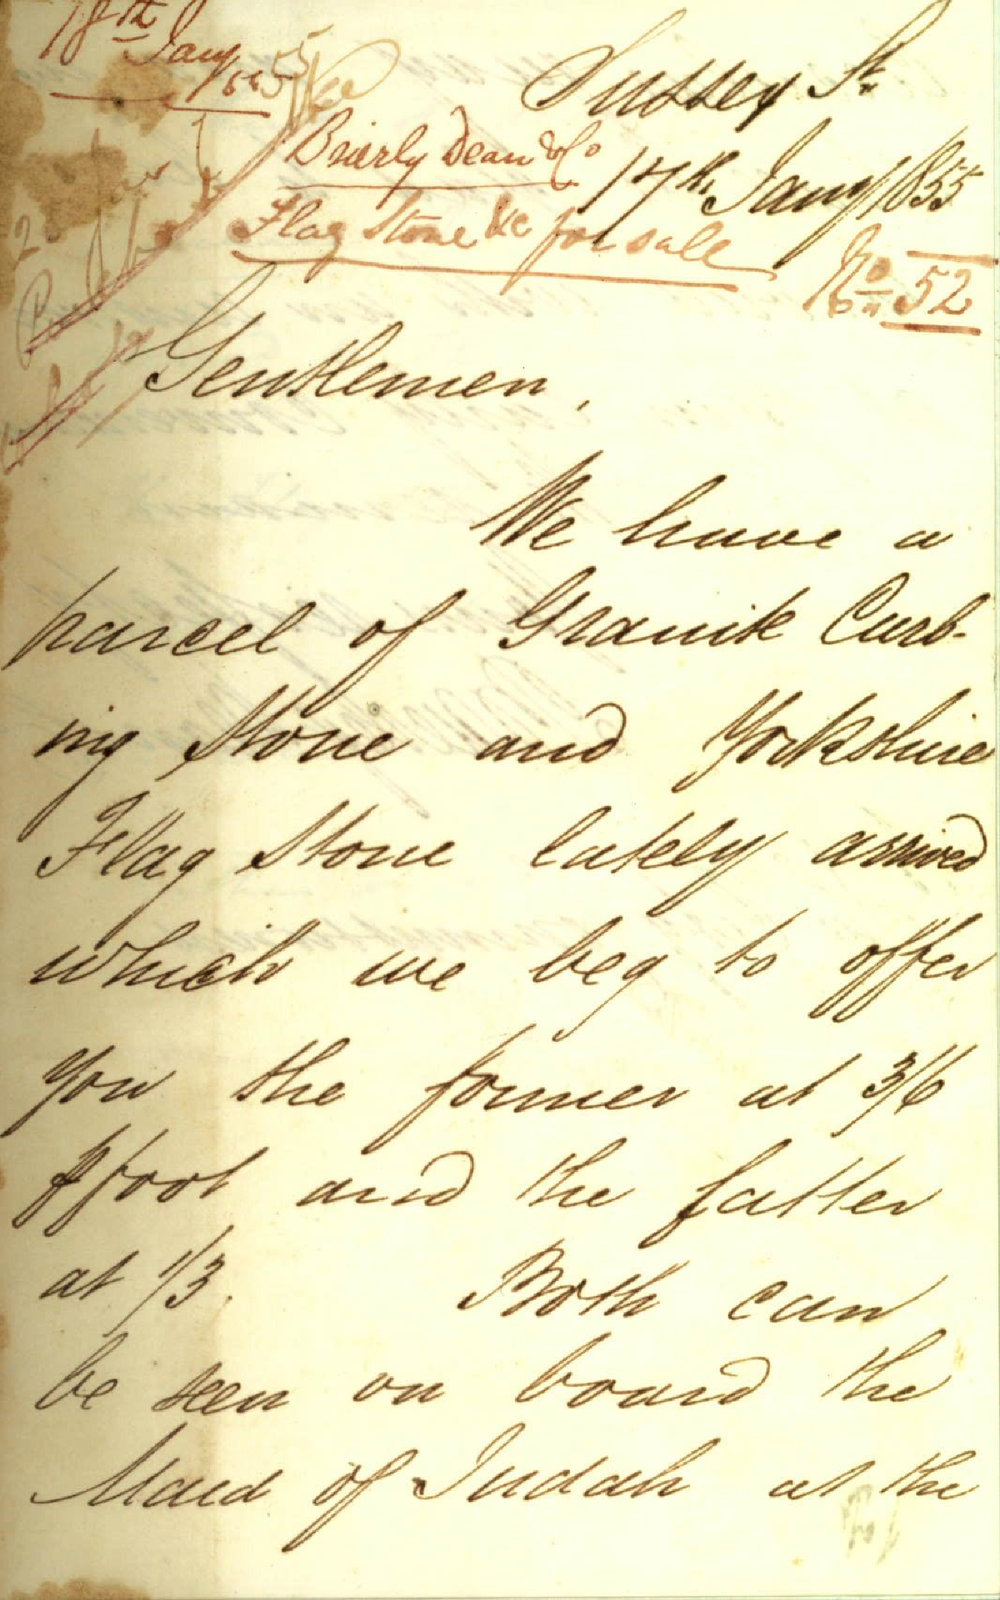 18th Jany
Sussex St
Brierly Dean & Co
17th Jany 1855
Flag Stone &c for sale
No 52
Gentlemen,
We have a
parcel of Granite Curb-
ing Stone and Yorkshire
Flag Stone lately arrived
which we beg to offer
you the former at 3/6
p foot and the latter
at 1/3. Both can
be seen on board the
Maid of Judah at the